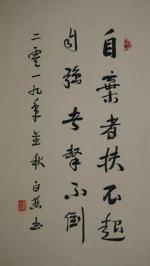 自棄者扶不起
自強者擊不倒
二零一九年金秋
白燕書